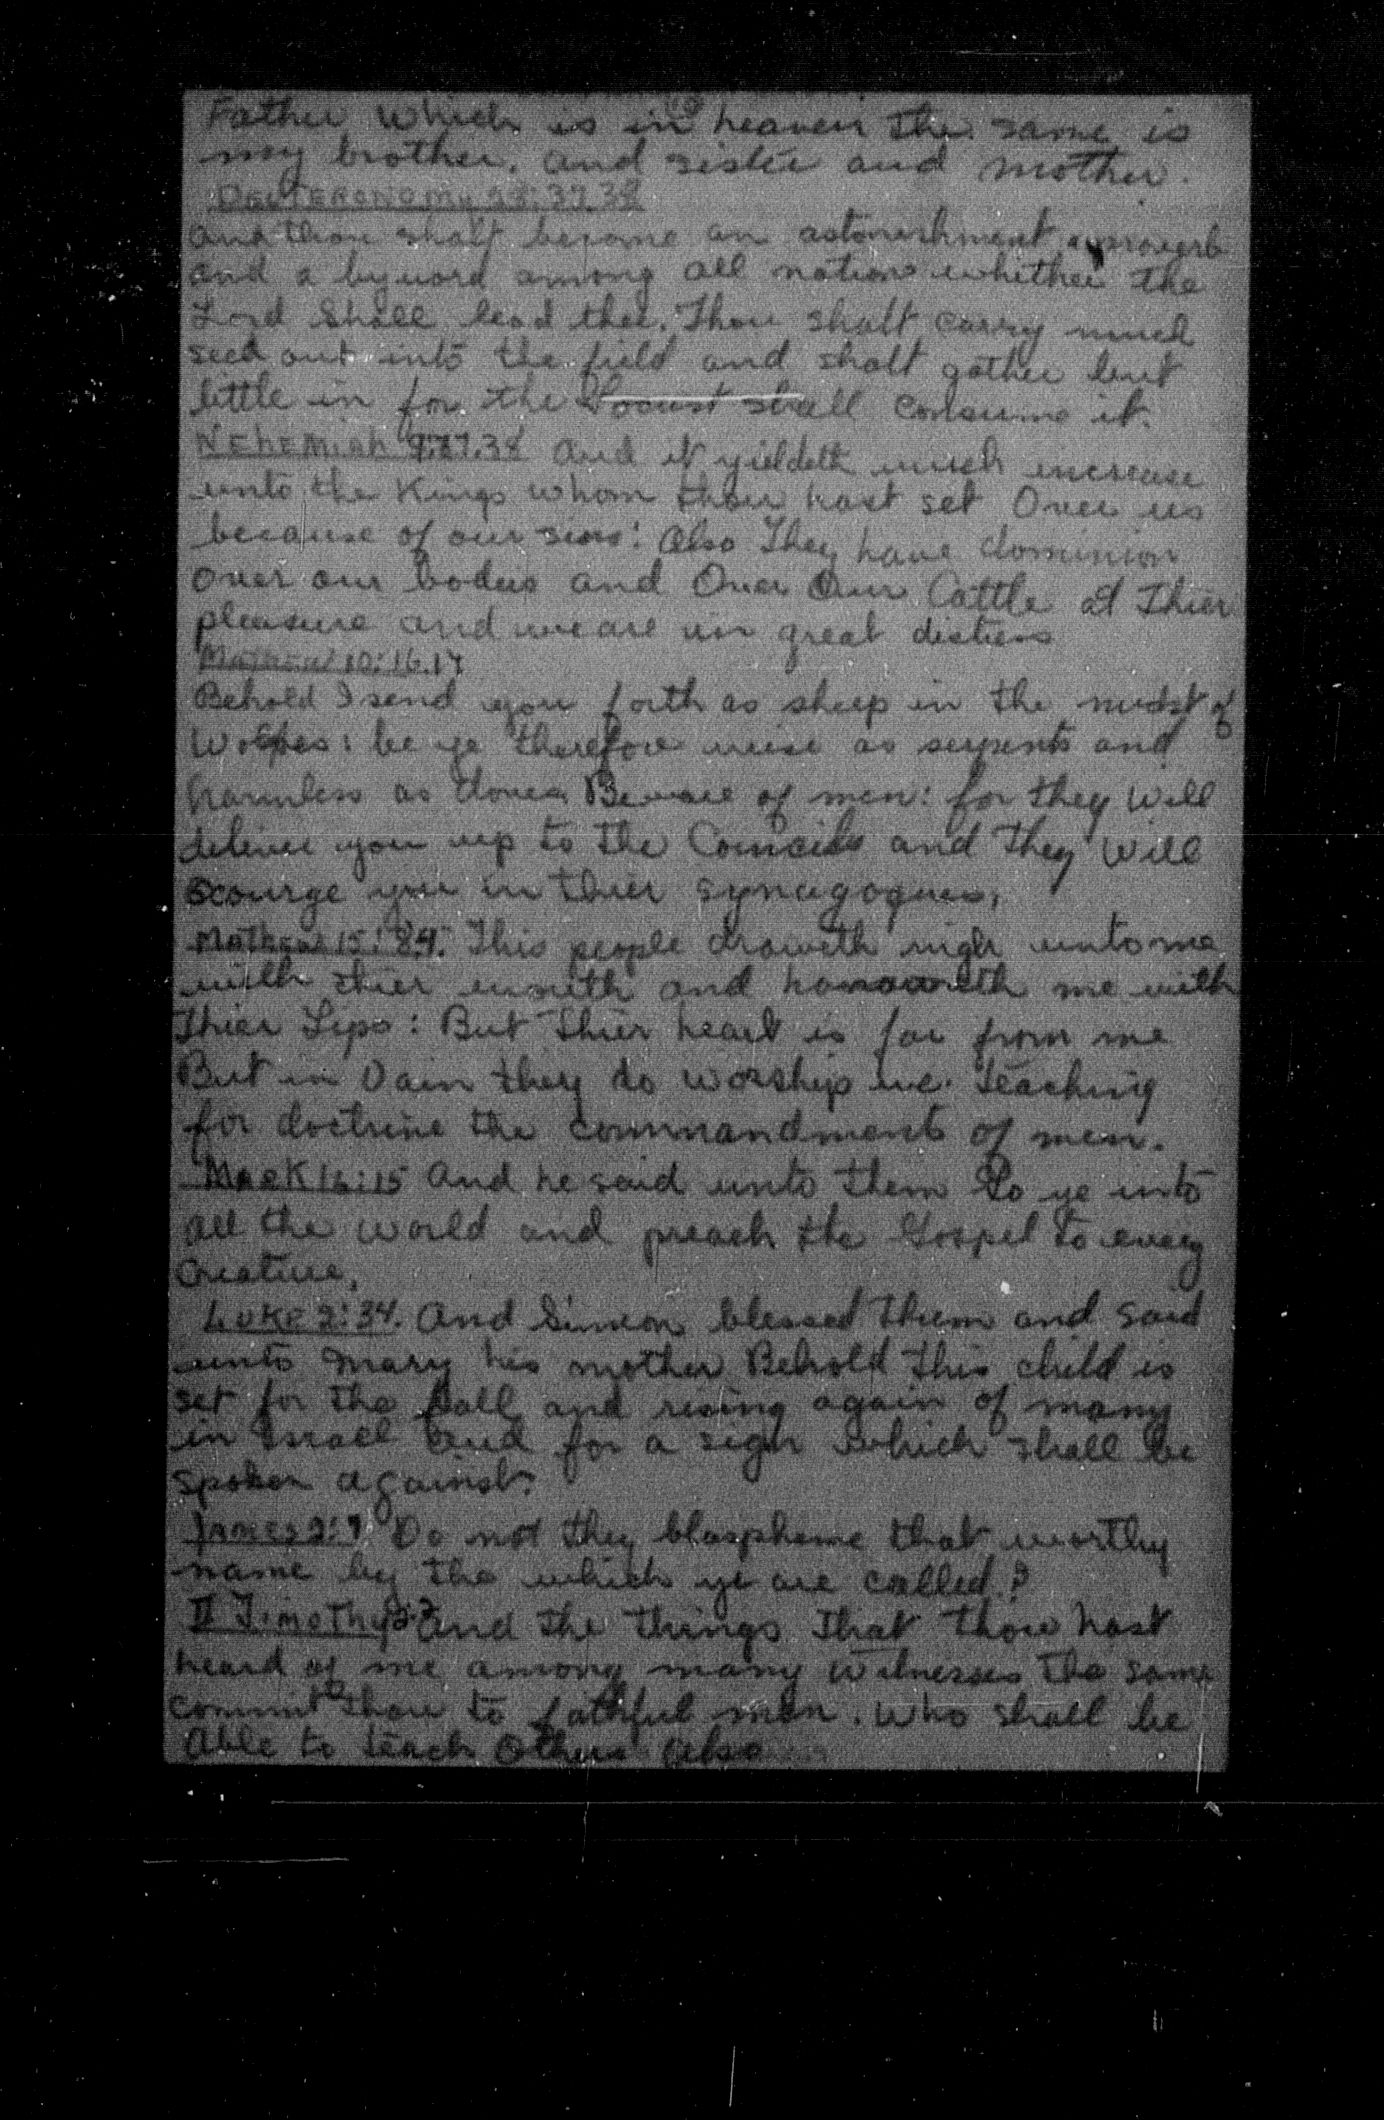 Father which is in heaven the same is
my brother, and sister and mother.
DEUTERONOMY 28:37.38
and thou shalt become an astonishment a proverb
and a byword among all nations whither the
Lord shall lead thee. Thou shalt carry much
seed out into the field and shalt gather but
little in for the Locust shall consume it.
NEHEMIAH 9:37.38 And it yieldeth much increase
unto the Kings whom thou hast set Over us
because of our sins: Also They have dominion
over our bodies and Over Our Cattle at Thier
pleasure and we are in great distress
Mathew 10:16.17
Behold I send you forth as sheep in the midst of
Wolves: be ye therefore wise as serpents and
harmless as doves Beware of men: for they will
deliver you up to the Councils and they will
scourge you in thier synagogues,
Mathew 15:8,9. This people draweth nigh unto me
with thier mouth and honoureth me with
Thier Lips: But thier heart is far from me
But in Vain they do worship me. teaching
for doctrine the commandments of men.
MARK 16:15 And he said unto them Go ye into
all the world and preach the Gospel to every
Creature,
LUKE 2:34. And Simeon blessed them and said
unto Mary his mother Behold this child is
set for the fall and rising again of many
in Israel and for a sign which shall be
spoken against.
JAMES 2:7 Do not they blaspheme that worthy
name by the which ye are called?
II Timothy 2:2 and the things that thou hast
heard of me among many witnesses the same
commit thou to faithful men. Who shall be
Able to teach Others also